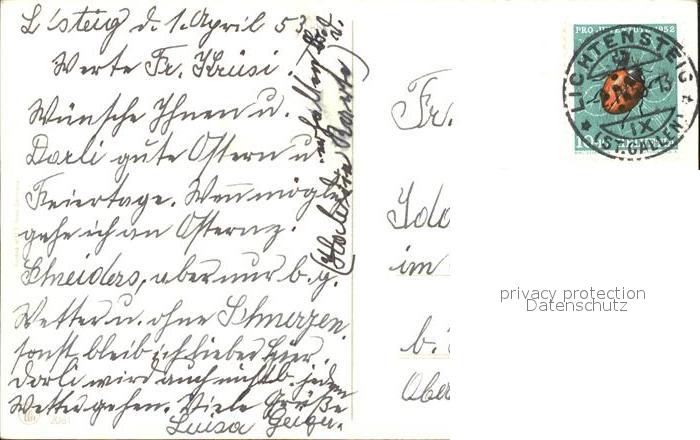 L'steig d. 1. April 53
Werte Fr. Krüsi.
Wünsche Ihnen u.
Dorli gute Ostern u.
Feiertage. Wenn möglich
gehe ich an Ostern z.
Schneiders, aber nur b. g.
Wetter u. ohne Schmerzen,
sonst bleib ich lieber hier.
Dorli wird auch nicht b. jedem
Wetter gehen. Viele Grüße
Luisa Geiger.
Karte
Fr.
Ida
im
b.
Ober
PRO JUVENTUTE 1952
LICHTENSTEIG
IX
(ST. GALLEN)
HELVETIA
privacy protection
Datenschutz